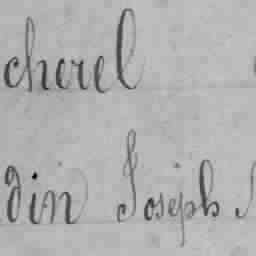 cherel
din Joseph